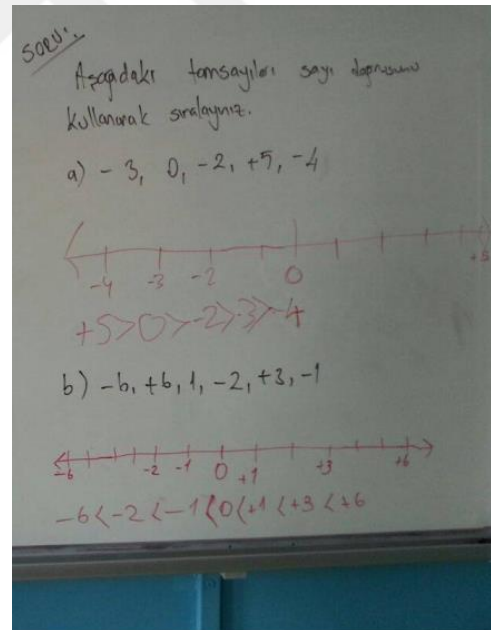 SORU:
Aşağıdaki tamsayıları sayı doğrusunu
kullanarak sıralayınız.
a) -3, 0, -2, +5, -4
-4 -3 -2 0 +5
+5>0>-2>-3>-4
b) -6, +6, 1, -2, +3, -1
-6 -2 -1 0 +1 +3 +6
-6<-2<-1<0<+1<+3<+6